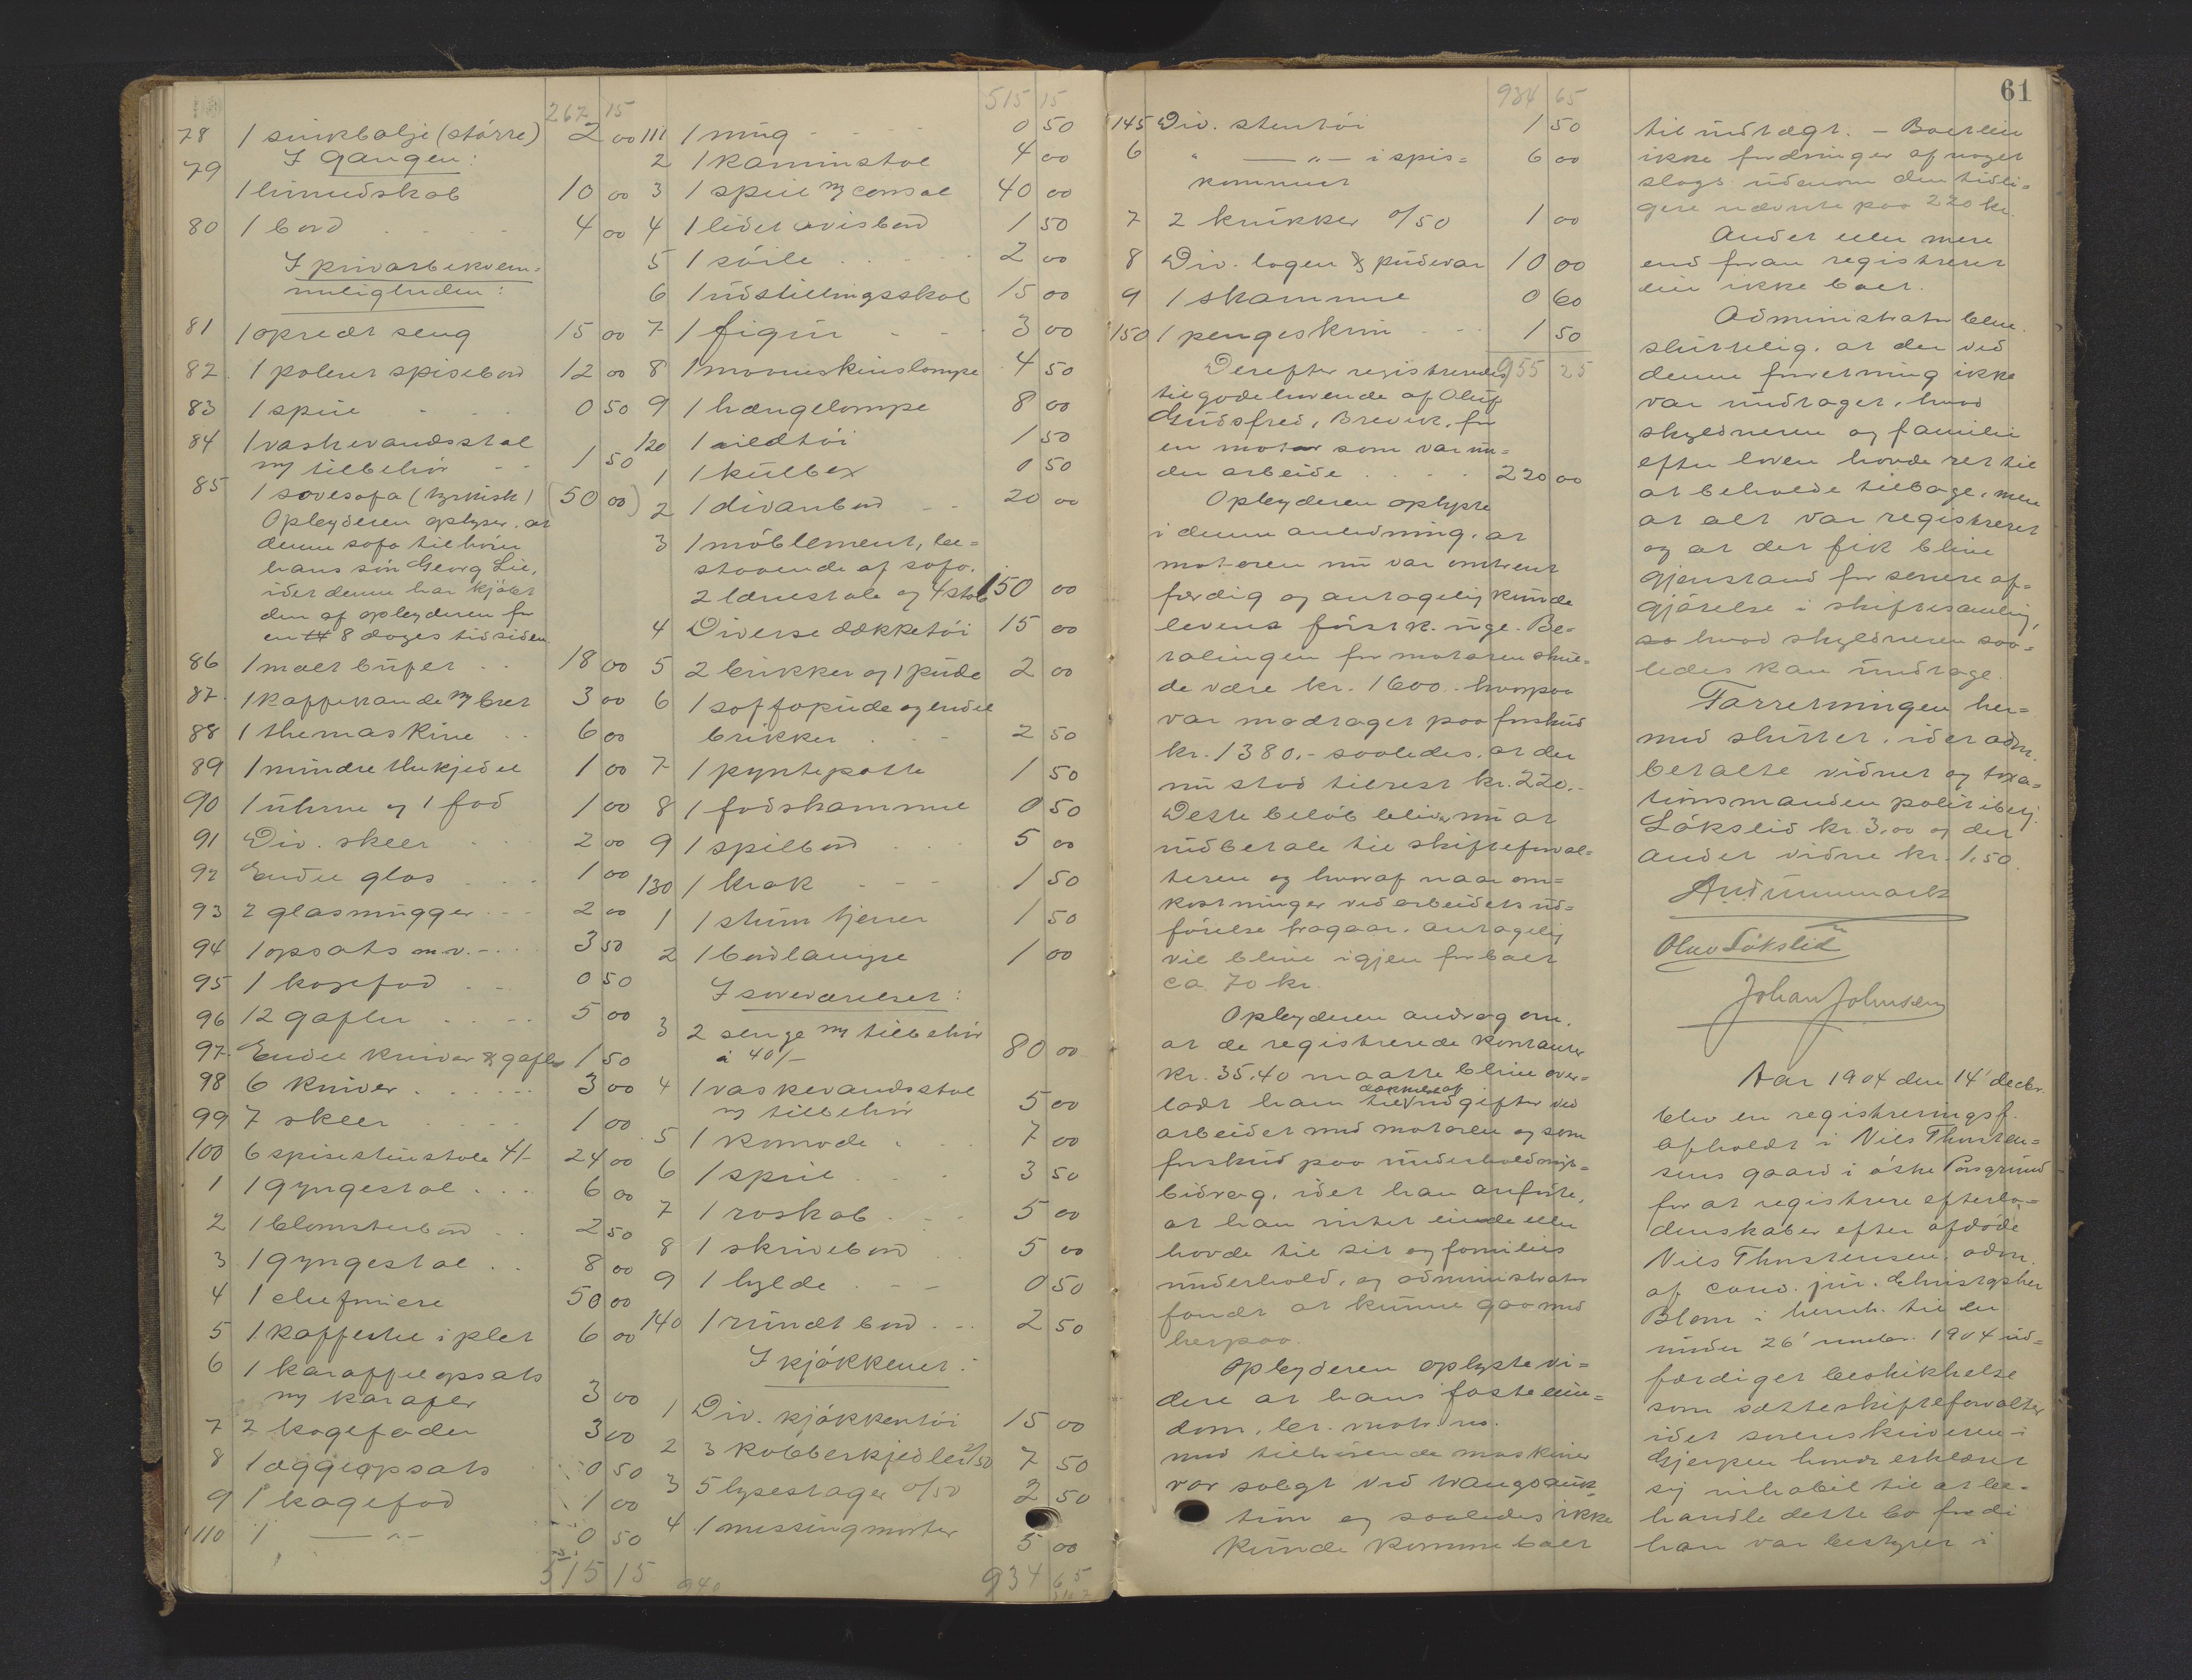 267 15
78 1 sinkbalje (större) 2 00
I gangen:
79
1 linnedskab 10 00
80 1 bord 4 00
I privatbekvem=
meligheden:
81 1 opredt seng 15 00
82 1 poleret spisebord 12 00
83 1 speil 0 50
84 1 vaskevandsstol
m/ tilbehör 1 50
85 1 sovesofa (tyrkisk) (50 00)
Opbyderen oplyser, at
denne sofa tilhörer
hans sön Georg Lie,
idet denne har kjöbt
den af opbyderen for
en 14 8 dages tid siden
86 1 malt bufet 18 00
87 1 kaffekande m/ bret 3 00
88 1 themaskine 6 00
89 1 mindre thekjedel 1 00
90 1 urne og 1 fad 1 00
91 Div. skeer 2 00
92 Endel glas 1 00
93 2 glasmugger 2 00
94 1 opsats m.v. 3 50
95 1 kagefad 0 50
96 12 gafler 5 00
97 Endel kniver & gafler 1 50
98 6 kniver 3 00
99 7 skeer 1 00
100 6 spisestuestole 4/- 24 00
1 1 gyngestol 6 00
2 1 blomsterbord 2 50
3 1 gyngestol 8 00
4 1 chefoniere 50 00
5 1 kaffestel i plet 6 00
6 1 karaffelopsats
m/ karafler 3 00
7 2 kagefader 3 00
8 1 æggeopsats 0 50
9 1 kagefad 1 00
110 1 —"— 0 50
515 15
515 15
111 1 mug 0 50
2 1 kaminstol 4 00
3 1 speil m/ consol 40 00
4 1 lidet avisbord 1 50
5 1 söile 2 00
6 1 udstillingsskab 15 00
7 1 figur 3 00
8 1 maaneskinslampe 4 50
9 1 hængelampe 8 00
120 1 ildtöi 1 50
1 1 kulbox 0 50
2 1 divanbord 20 00
3 1 möblement, be=
staaende af sofa,
2 lænestole og 4 stole 150 00
4 Diverse dækketöi 15 00
5 2 brikker og 1 pude 2 00
6 1 soffapude og endel
brikker 2 50
7 1 pyntepotte 1 50
8 1 fodskammel 0 50
9 1 spilbord 5 00
130 1 krak 1 50
1 1 stum tjener 1 50
2 1 bordlampe 1 00
I soveværelset:
3 2 senge m/ tilbehör
à 40/- 80 00
4 1 vaskevandsstol
m/ tilbehör 5 00
5 1 komode 7 00
6 1 speil 3 50
7 1 roskab 5 00
8 1 skrivebord 5 00
9 1 hylde 0 50
140 1 rundt bord 2 50
I kjökkenet:
1 Div. kjökkentöi 15 00
2 3 kobberkjedler 2/50 7 50
3 5 lysestager 0/50 2 50
4 1 messingmorter 5 00
934 65
934 65
145 Div. stentöi 1 50
6 " —"— i spis=
kammeret 6 00
7 2 krukker 0/50 1 00
8 Div. lagen & pudevar 10 00
9 1 skammel 0 60
150 1 pengeskrin 1 50
Derefter registreredes 955 25
tilgodehavende af Oluf
Gudsfred, Brevik, for
en motor som var un=
der arbeide 220 00
Opbyderen oplyste
i denne anledning, at
motoren nu var omtrent
færdig og antagelig kunde
leveres först k. uge. Be=
talingen for motoren skul=
de være kr. 1600.- hvorpaa
var modtaget paa forskud
kr. 1380.- saaledes, at der
nu stod tilrest kr. 220.-
Dette belöb bliver nu at
udbetale til skifteforval=
teren og hvoraf naar om=
kostninger ved arbeidets ud=
förelse fragaar, antagelig
vil blive igjen for boet
ca. 70 kr.
Opbyderen androg om,
at de registrerede kontanter
kr. 35.40 maatte blive over=
ladt ham til dækkelse af udgifter ved
arbeidet med motoren og som
forskud paa underholdnings=
bidrag, idet han anförte,
at han intet eiede eller
havde til sit og familiens
underhold, og administrator
fandt at kunne gaa med
herpaa.
Opbyderen oplyste vi=
dere at hans faste eien=
dom, br. matr. no.
med tilhörende maskiner
var solgt ved tvangsauk=
tion og saaledes ikke
kunde komme boet
61
til indtægt. – Boet eier
ikke fordringer af noget
slags udenom den tidli=
gere nævnte paa 220 kr.
Andet eller mere
end foran registreret
eier ikke boet.
Administrator blev
sluttelig, at der ved
denne forretning ikke
var undtaget, hvad
skyldneren og familie
efter loven havde ret til
at beholde tilbage, men
at alt var registreret
og at det fik blive
gjenstand for senere af=
gjörelse i skiftesamling,
so hvad skyldneren saa=
ledes kan undtage.
Forretningen her=
med sluttet, idet adm.
betalte vidnet og taxa=
tionsmanden politibetj.
Lökslid kr. 3,00 og det
andet vidne kr. 1,50.
Olav Lökslid
Johan Johnsen
Aar 1904 den 14' decbr.
blev en registreringsf.
afholdt i Niels Thorsten=
sens gaard i östre Porsgrund
for at registrere efterla=
denskaber efter afdöde
Niels Thorstensen, adm.
af cand. jur. Christopher
Blom i henh. til en
under 26' novbr. 1904 ud=
færdiget beskikkelse
som sætteskifteforvalter
idet sorenskriveren i
Gjerpen havde erklæret
sig inhabil til at be=
handle dette bo fordi
han var bestyrer i